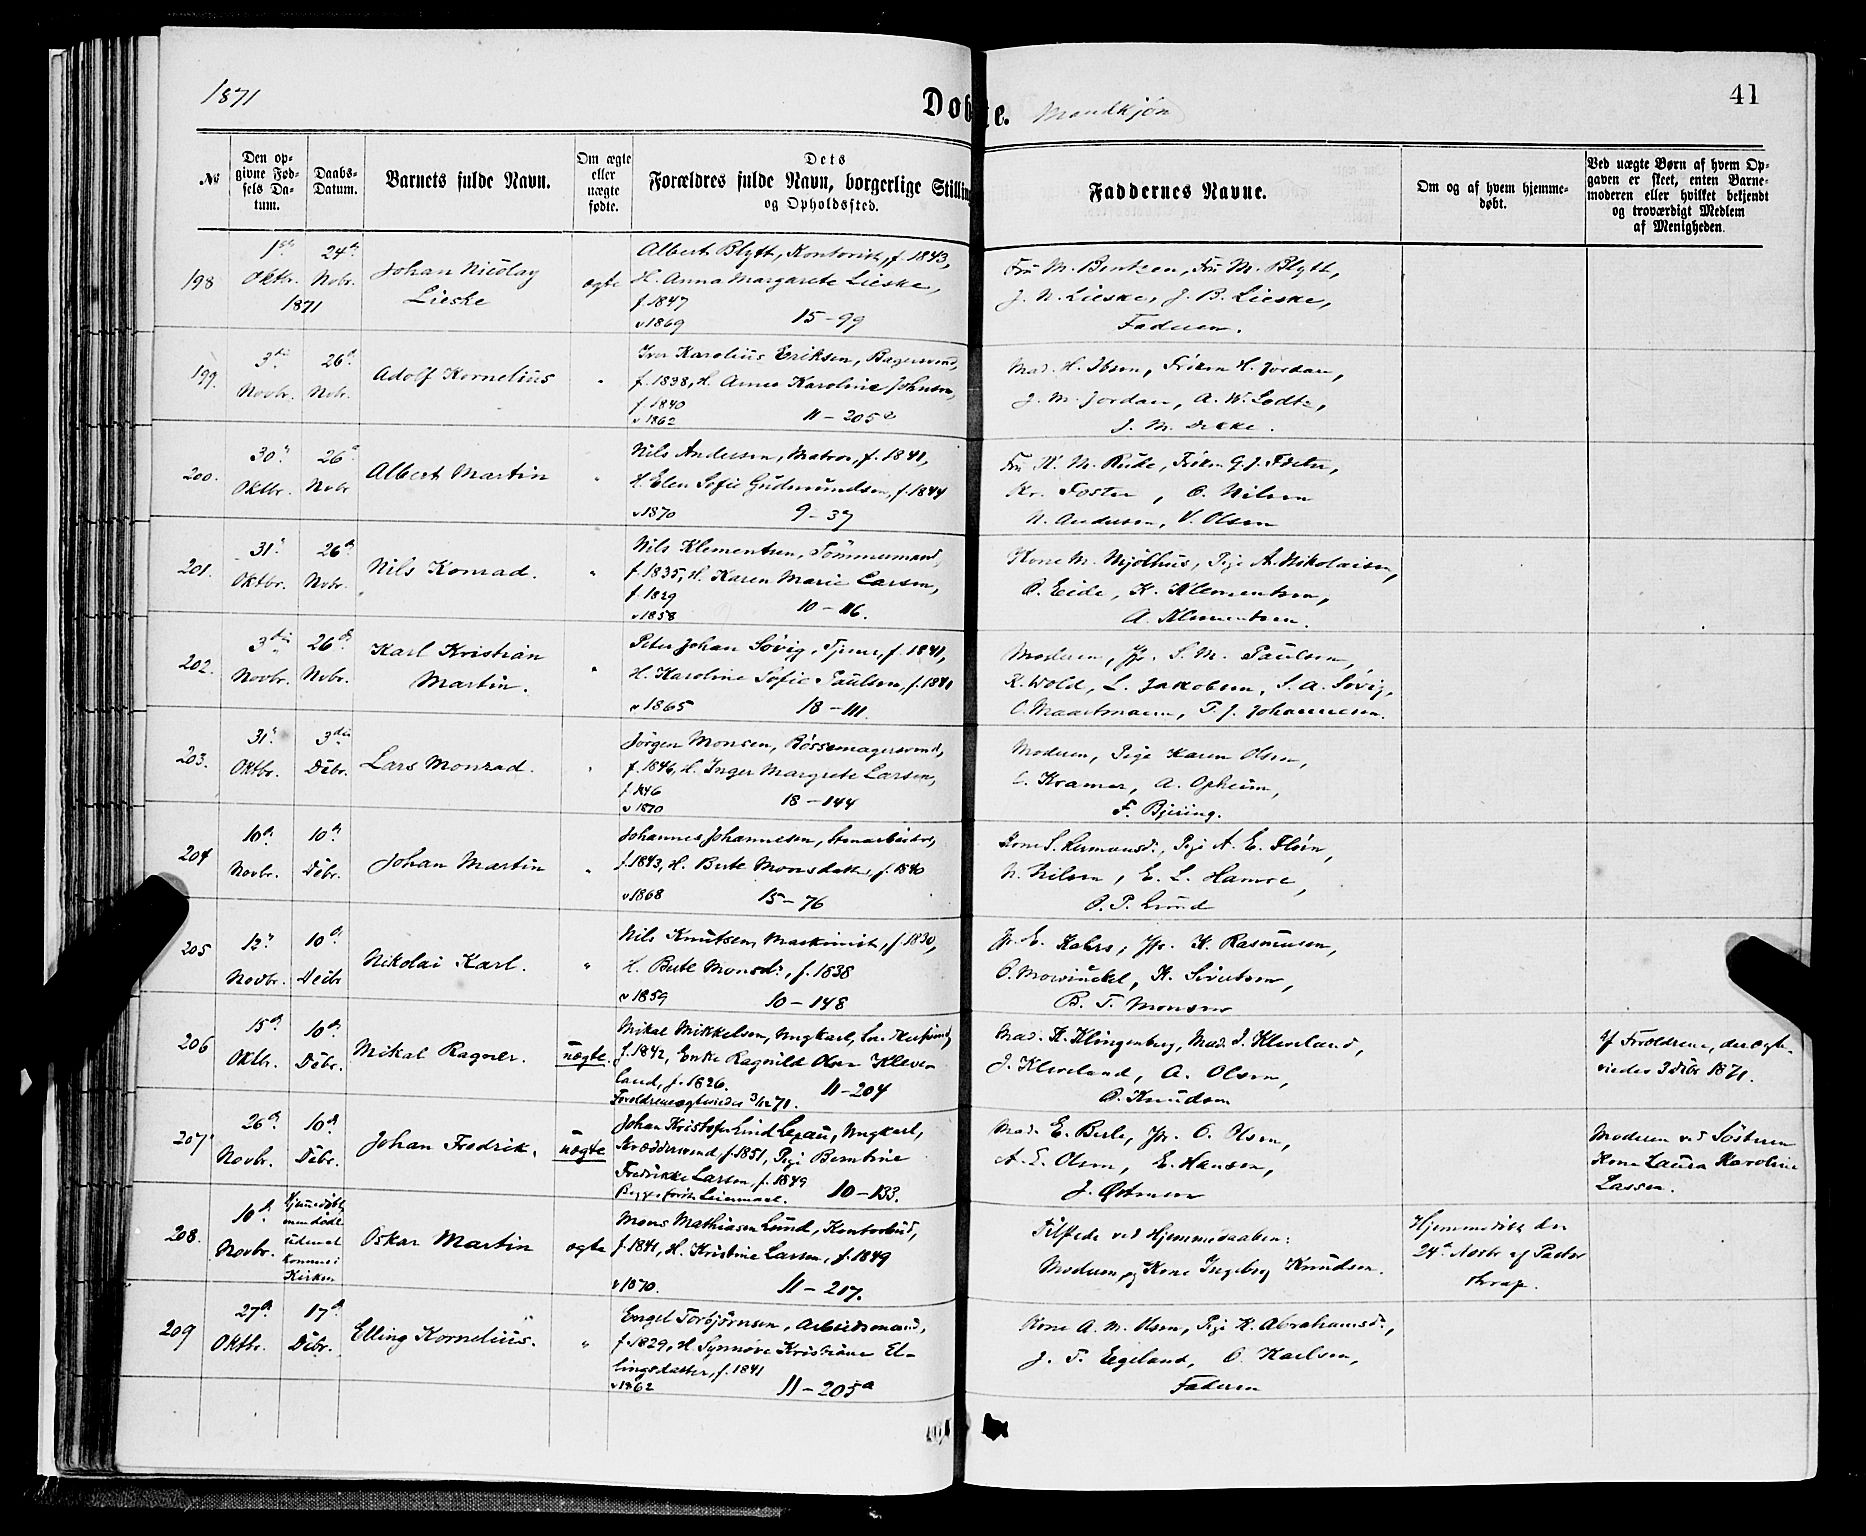 1871
Døbte. Mandkjøn
41
No
Den opgivne Fødsels Datum.
Daabs-Datum.
Barnets fulde Navn.
Om ægte eller uægte fødte.
Dets
Forældres fulde Navn, borgerlige Stilling
og Opholdssted.
Faddernes Navne.
Om og af hvem hjemmedøbt.
Ved uægte Børn af hvem Opgaven er skeet, enten Barnemoderen eller hvilket bekjendt og troværdigt Medlem af Menigheden.
198
1ste Oktbr. 1871
24de Novbr.
Johan Nicolay
Lieske
ægte
Albert Blytt, Kontorist, f. 1843,
H. Anna Margarete Lieske,
f. 1847
v 1869 15-99
Fru M. Bentzen, Fru M. Blytt,
J. N. Lieske, J. B. Lieske,
Faderen.
199.
3die Novbr.
26de Nobr.
Adolf Kornelius
"
Iver Karolius Eriksen, Bagersvend,
f. 1838, H. Anne Karoline Johnsen,
f. 1840
v 1862 11-205
Mad. H. Ibsen, Frøken H. Jordan,
J. M. Jordan, A. W. Lodtz,
J. M. Dekke.
200.
30te Oktbr.
26de Nobr
Albert Martin
"
Nils Andersen, Matros, f. 1841,
H. Elen Sofie Gudmundsen, f. 1844
v 1870 9-37
Fru H. M. Rude, Frøken G. J. Foster,
Kr. Foster, O. Nilsen
N. Andersen, V. Olsen
201.
31te Oktbr.
26de Nobr.
Nils Konrad.
"
Nils Klementsen, Tømmermand,
f. 1835, H. Karen Marie Larsen,
f. 1829
v 1858 10-116.
Kone M. Mjølhus, Pige A. Nikolaisen,
O. Eide, K. Klementsen,
A. Klementsen.
202.
3die Novbr.
26de Nobr.
Karl Kristian
Martin.
"
Peter Johan Søvig, Tjener, f. 1841,
H. Karoline Sofie Paulsen, f. 1841
v 1865 18-111.
Moderen, Jfr. S. M. Paulsen,
R. Wold, L. Jakobsen, S. A. Søvig,
O. Maartmann, T. J. Johannesen.
203.
31te Oktbr.
3die Dcbr.
Lars Monrad.
"
Jørgen Monsen, Bøssemagersvend,
f. 1846, H. Inger Margrete Larsen,
f. 1846
v 1870 18-144
Moderen, Pige Karen Olsen,
Kramer, A. Opheim,
F. Bjering.
204
10de Novbr.
10de Dcbr.
Johan Martin
"
Johannes Johannesen, Stenarbeider,
f. 1843, H. Berte Monsdatter, f. 1840
v 1868 15-76
Kone S. Hermansdr, Pige A. E. Fløen,
N. Nilsen, E. L. Hamre,
O. P. Lund
205
12te Novbr.
10de Decbr
Nikolai Karl.
"
Nils Knutsen, Maskinist, f. 1830,
H. Berte Monsdr, f. 1838
v 1859 10-148
Jfr. E. Kahrs, Jfr. K. Rasmusen,
O. Mowinckel, K. Sivertsen,
B. T. Monsen
206
15de Oktbr.
10de Dcbr.
Mikal Ragner.
uægte.
Mikal Mikkelsen, Ungkarl,
f. 1842, Enke Ragnild Olsen Kleveland, f. 1826. 11-204
Forældrene ægteviedes 3/12 71.
Mad. K. Klingenberg, Mad. I. Kleveland,
J. Kleveland, A. Olsen,
O. Knudsen
Af Forældrene, der ægteviedes 3 Dcbr 1871.
207
26de Novbr.
10de Dcbr.
Johan Fredrik.
uægte
Johan Kristofer Lind Legau, Ungkarl,
Skræddersvend, f. 1851, Pige Berntine
Fredrikke Larsen, f. 1849
Begges første Leiermaal. 10-133.
Mad. E. Berle, Jfr. O. Olsen,
A. E. Olsen, E. Hansen,
J. Østmoen
Moderen ved Søsteren
Kone Laura Karoline
Lassen.
208.
10de Novbr.
Hjemmedøbt, men døde uden at komme i Kirken
Oskar Martin
ægte
Mons Mathiasen Lund, Kontorbud,
f. 1841, H. Kristine Larsen, f. 1849
v 1870. 11-217.
Tilstede ved Hjemmedaaben:
Moderen og Kone Ingeborg Knudsen.
Hjemmedøbt den
24de Novbr af Pastor
Krag.
209
27de Oktbr.
17de Dcbr.
Elling Kornelius.
"
Engel Torbjørnsen, Arbeidsmand,
f. 1829, H Synnøve Kristiane Ellingsdatter, f. 1841
v 1862 11-205a
Kone A. M. Olsen, Pige K. Abrahamsdr,
J. T. Egeland, O. Karlsen,
Faderen